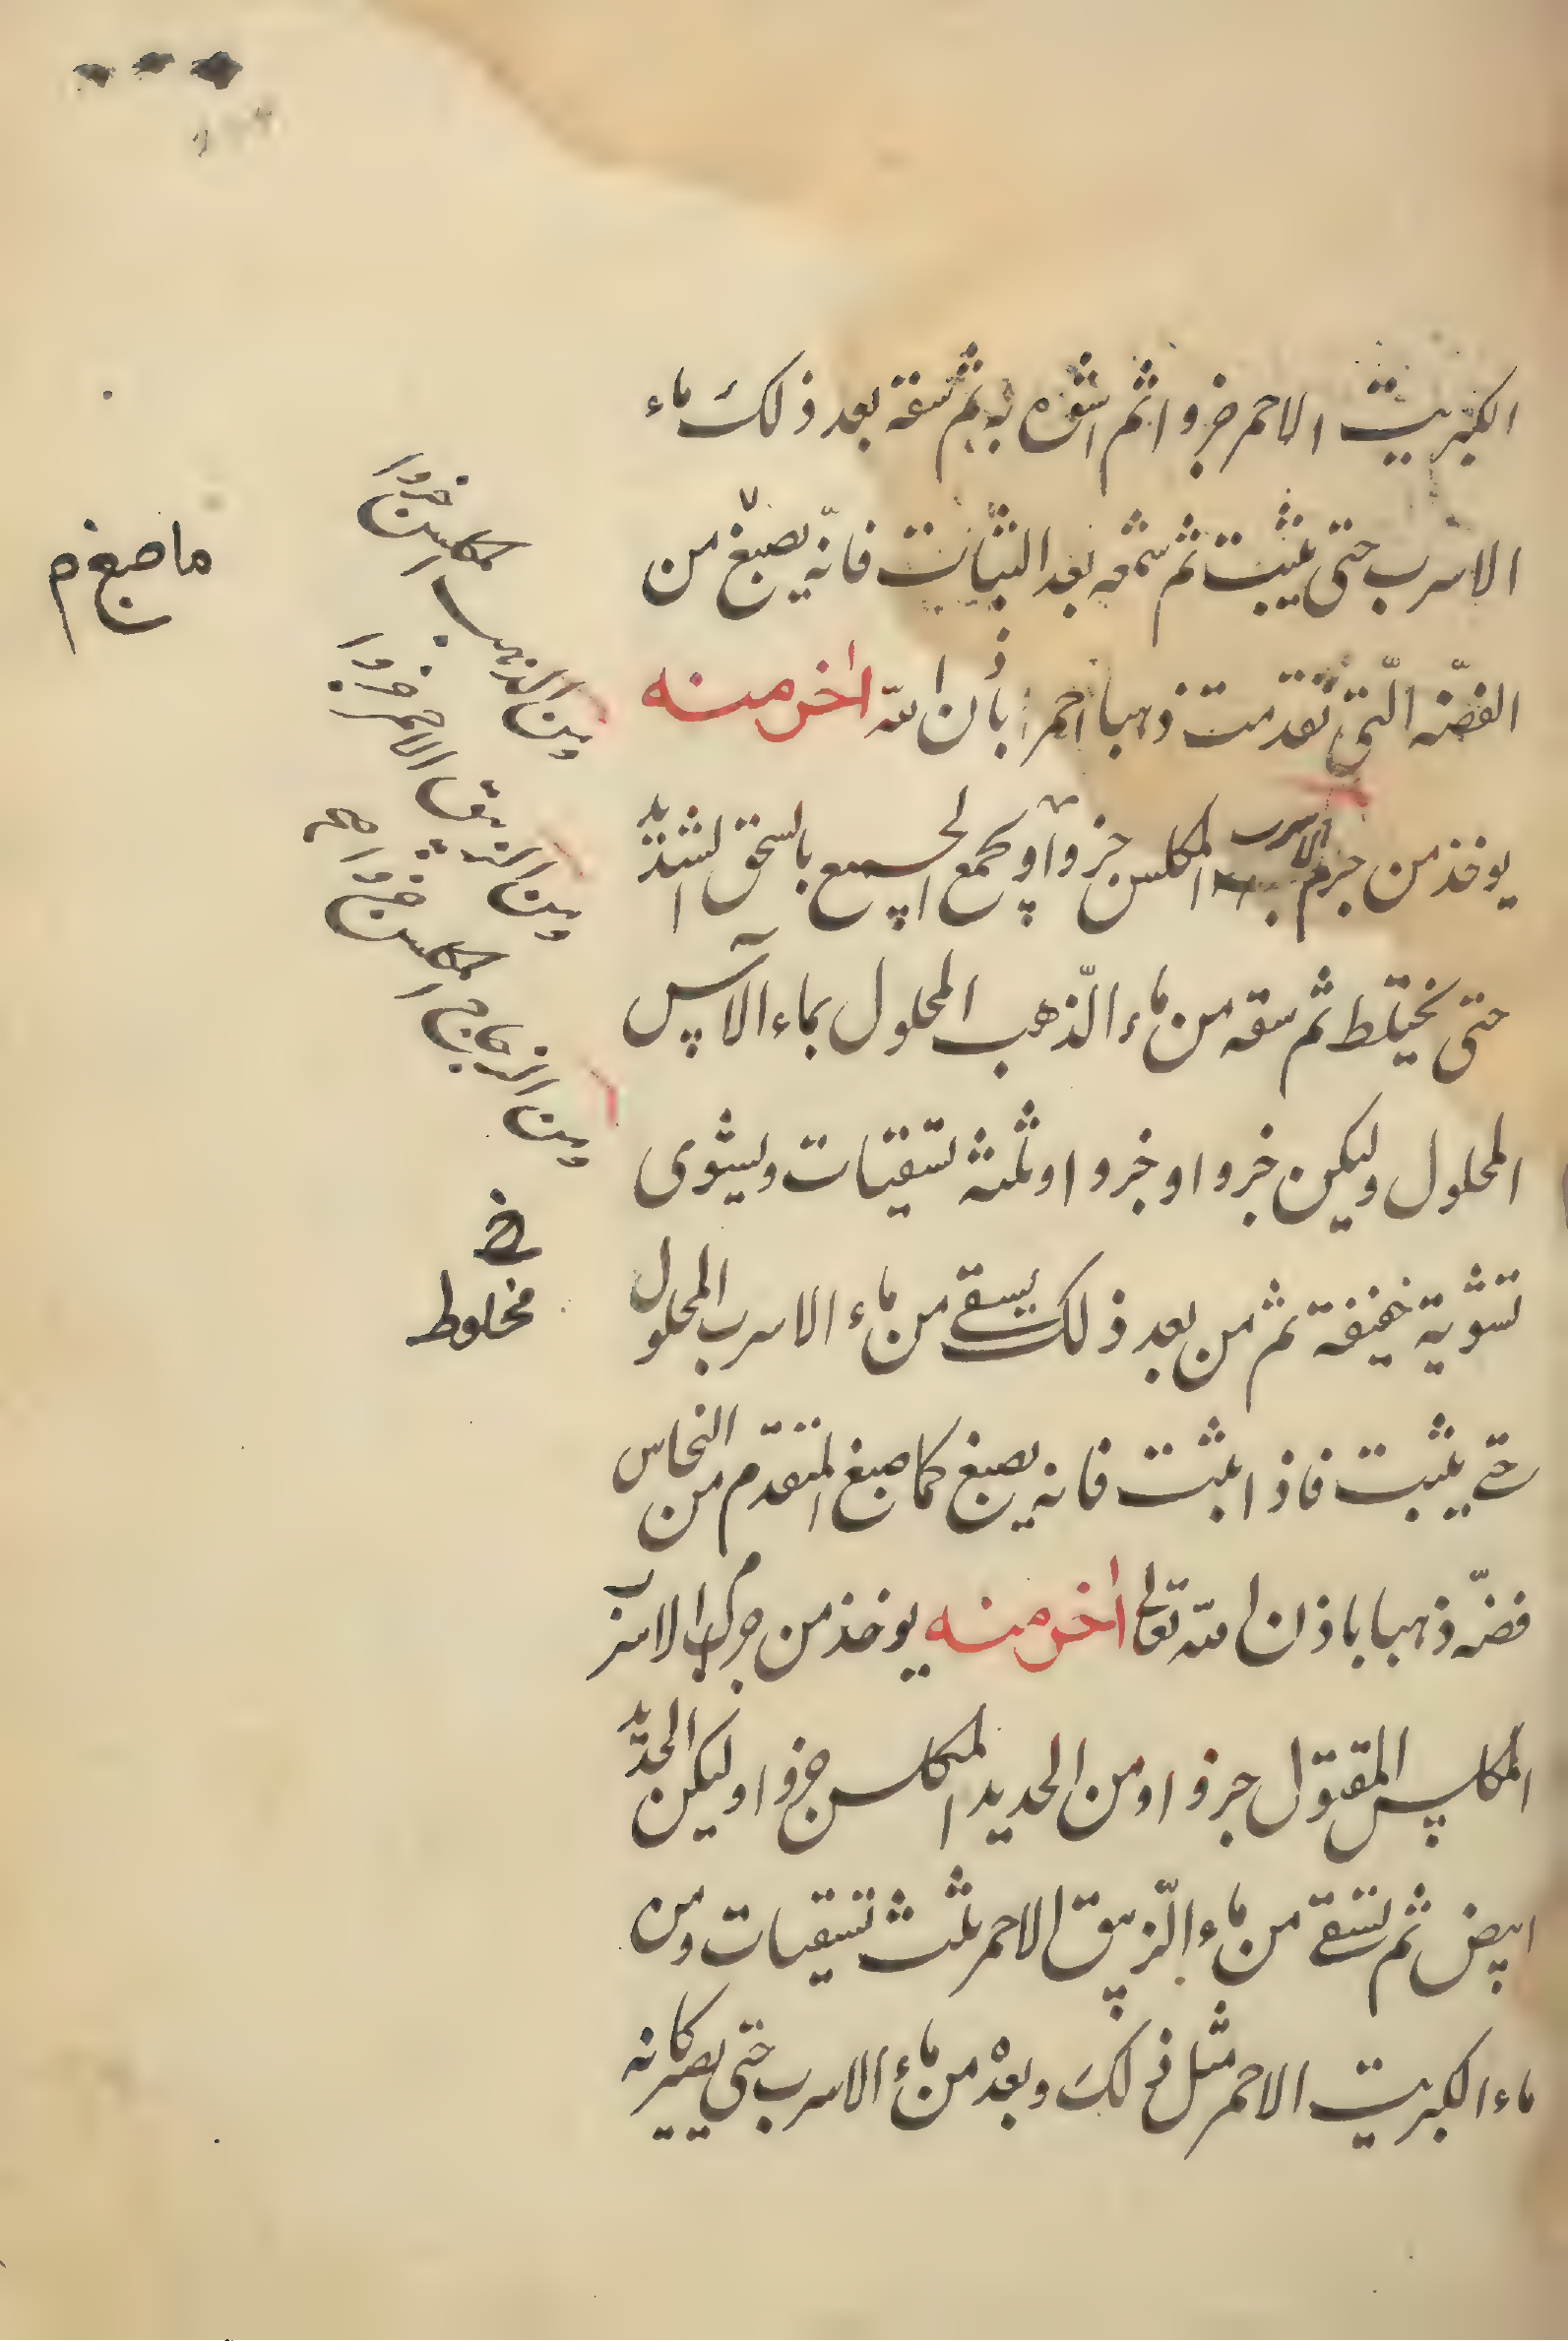 الكبريت الاحمر جزوا ثم اشوه به ثم سقه بعد ذلك ماء
الاسرب حتى يثبت ثم شمعه بعد الثبات فانّه يصبغ من
الفضّه الّتى تقدمت ذهبا احمر باذن الله اخر منه
يوخذ من جزم الاسرب المكلس جزوا و يجمع الجميع بالسحق الشديد
حتى يختلط ثم سقه من ماء الّذهب المحلول بماء الآس
المحلول وليكن جزوا وجزوا وثلثه تسقيات ويشوى
تشوية خفيفة ثم من بعد ذلك يسقى من ماء الاسرب المحلول
حتى يثبت فاذا يثبت فانه يصبغ كما صبغ المتقدم من النحاس
فضّه ذهبا باذن الله تعالى اخر منه يوخذ من جرم الاسرب
المكلس المقتول جزوا ومن الحديد المكلس جزوا وليكن الحديد
ابيض ثم تسقى من ماء الّزيبق الاحمر ثلث تسقيات ومن
ماء الكبريت الاحمر مثل ذلك وبعده من ماء الاسرب حتى يصير كانه
ومن الذهب المكلس جزوا
ومن الزيبق الاحمر جزوا
ومن الزجاج المكلس جزوا صح
ما صبغ م
خ
مخلوط